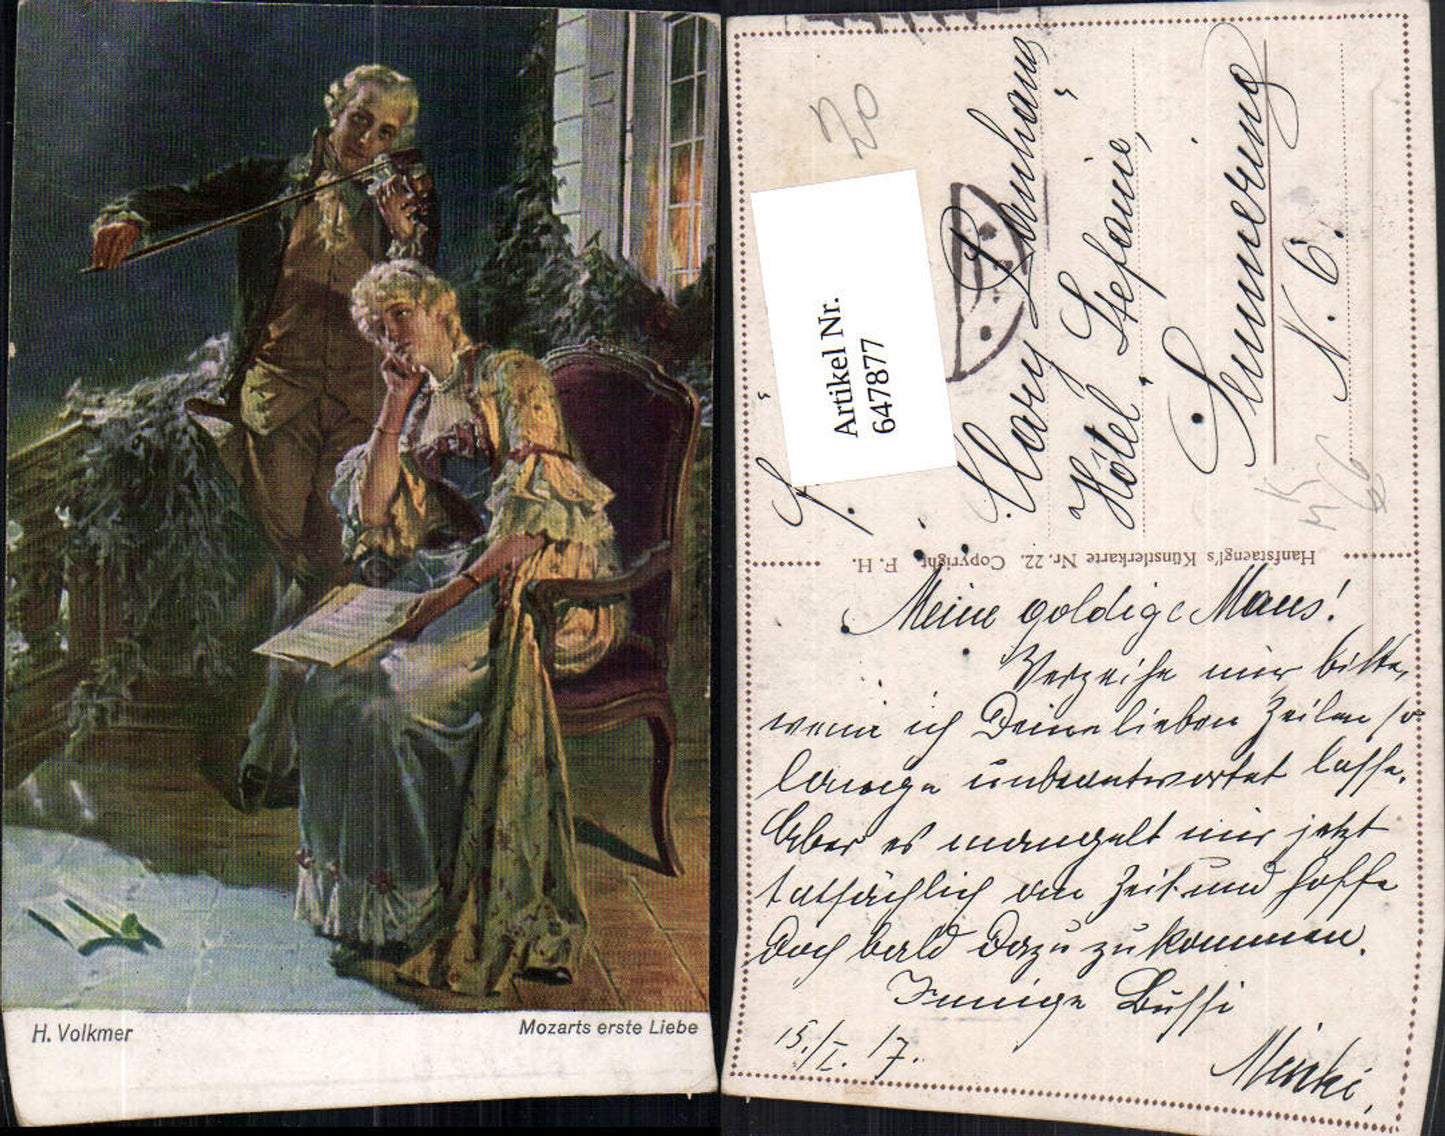 H. Volkmer
Mozarts erste Liebe
20
Artikel Nr.
647877
Mary
Hôtel „Stefanie,
Semmering
N. Ö.
Hanfstaengl's Künstlerkarte Nr. 22. Copyright F. H.
Meine goldige Maus!
Verzeihe mir bitte,
wenn ich Deine lieben Zeilen so
lange unbeantwortet lasse.
Aber es mangelt mir jetzt
tatsächlich an Zeit und hoffe
doch bald dazu zu kommen.
Innige Bussi
15./I. 17.
Minki,